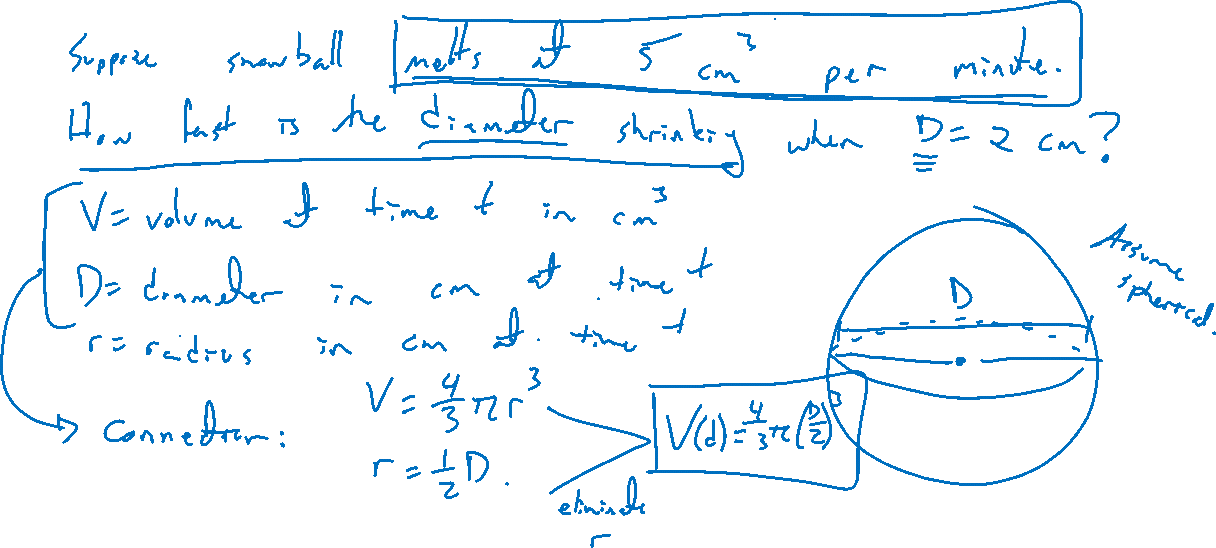 Suppose snowball melts at 5 cm³ per minute.
How fast is the diameter shrinking when D = 2 cm?
V = volume at time t in cm³
D = diameter in cm at time t
r = radius in cm at time t
Connection:
V = 4/3 πr³
r = 1/2 D.
eliminate
r
V(d) = 4/3 π(D/2)³
D
Assume
spherical.